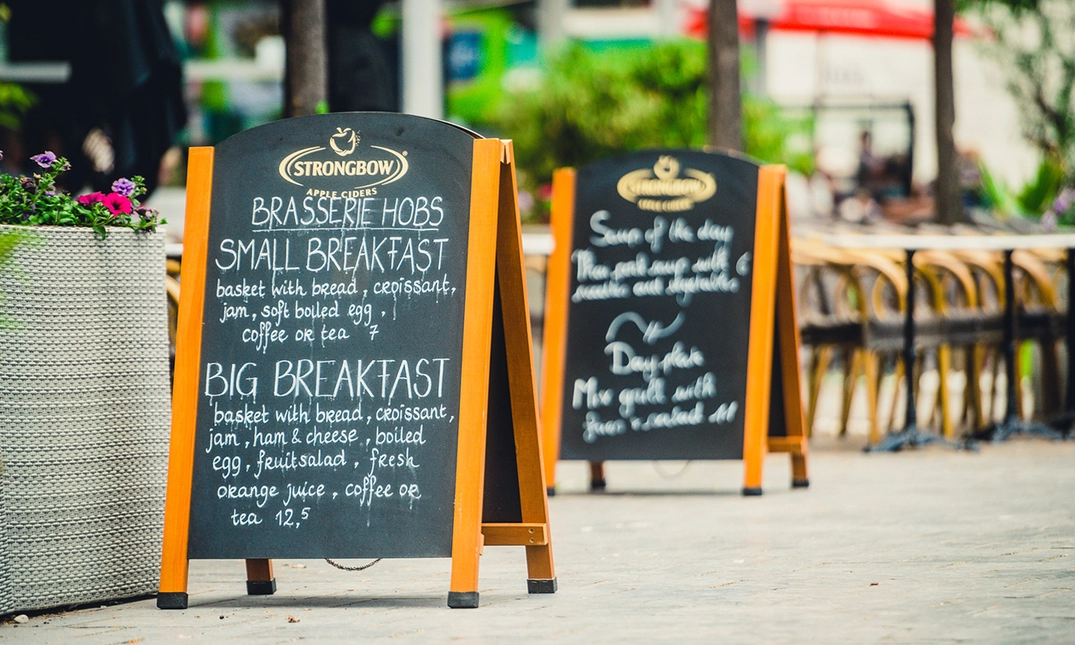 STRONGBOW
APPLE CIDERS
BRASSERIE HOBS
SMALL BREAKFAST
basket with bread, croissant,
jam, soft boiled egg,
coffee or tea 7
BIG BREAKFAST
basket with bread, croissant,
jam, ham & cheese, boiled
egg, fruitsalad, fresh
orange juice, coffee or
tea 12,5
STRONGBOW
APPLE CIDERS
Soup of the day
soup with
and vegetables
Day plate
Mix grill with
+ salad 11